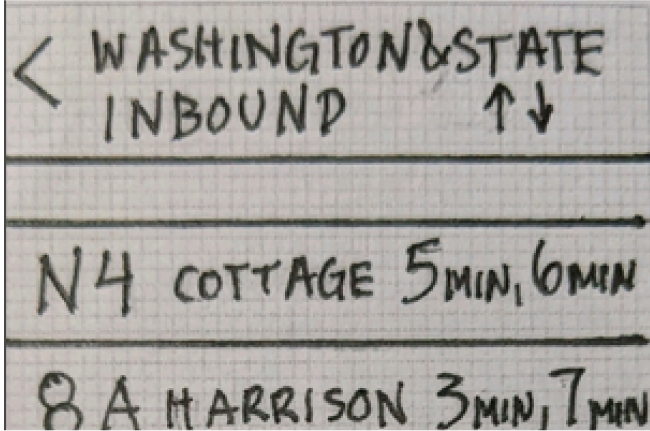 < WASHINGTON&STATE
INBOUND ↑↓
N4 COTTAGE 5MIN, 6MIN
8A HARRISON 3MIN, 7MIN